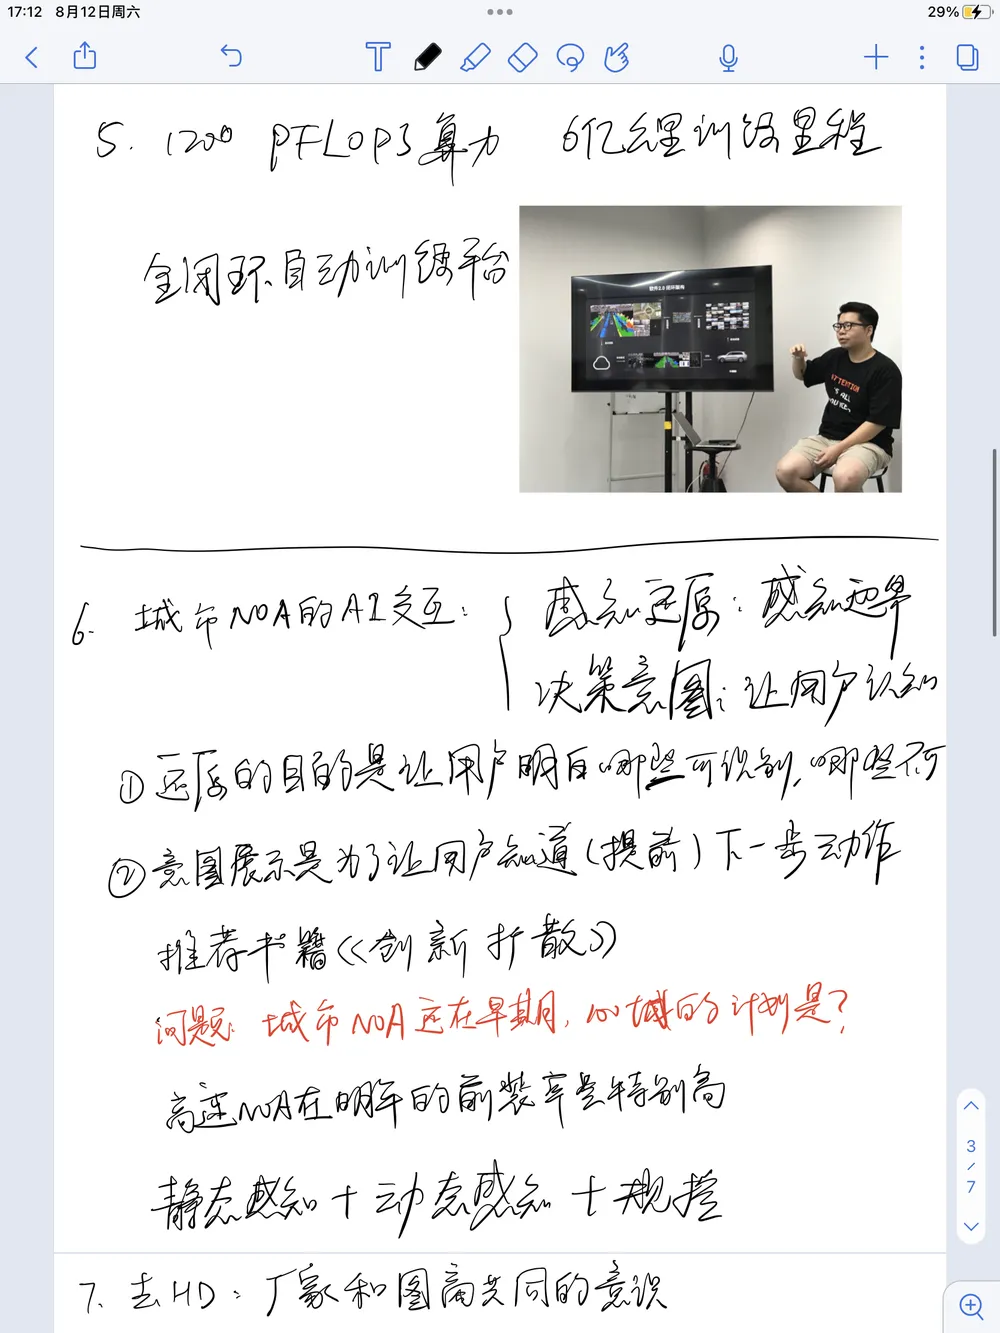 17:12 8月12日周六
29%
5. 1200 PFLOPS算力 6亿公里训练里程
全闭环自动训练平台
软件2.0 闭环架构
ATTENTION
IS ALL
YOU NEED
6. 城市NOA的AI交互:
感知还原: 感知边界
决策意图: 让用户认知
① 还原的目的是让用户明白哪些可识别, 哪些不可
② 意图展示是为了让用户知道(提前)下一步动作
推荐书籍《创新扩散》
问题: 城市NOA还在早期, 100城的计划是?
高速NOA在明年的前装率是特别高
静态感知+动态感知+规控
3
7
7. 去HD: 厂家和图商共同的意识